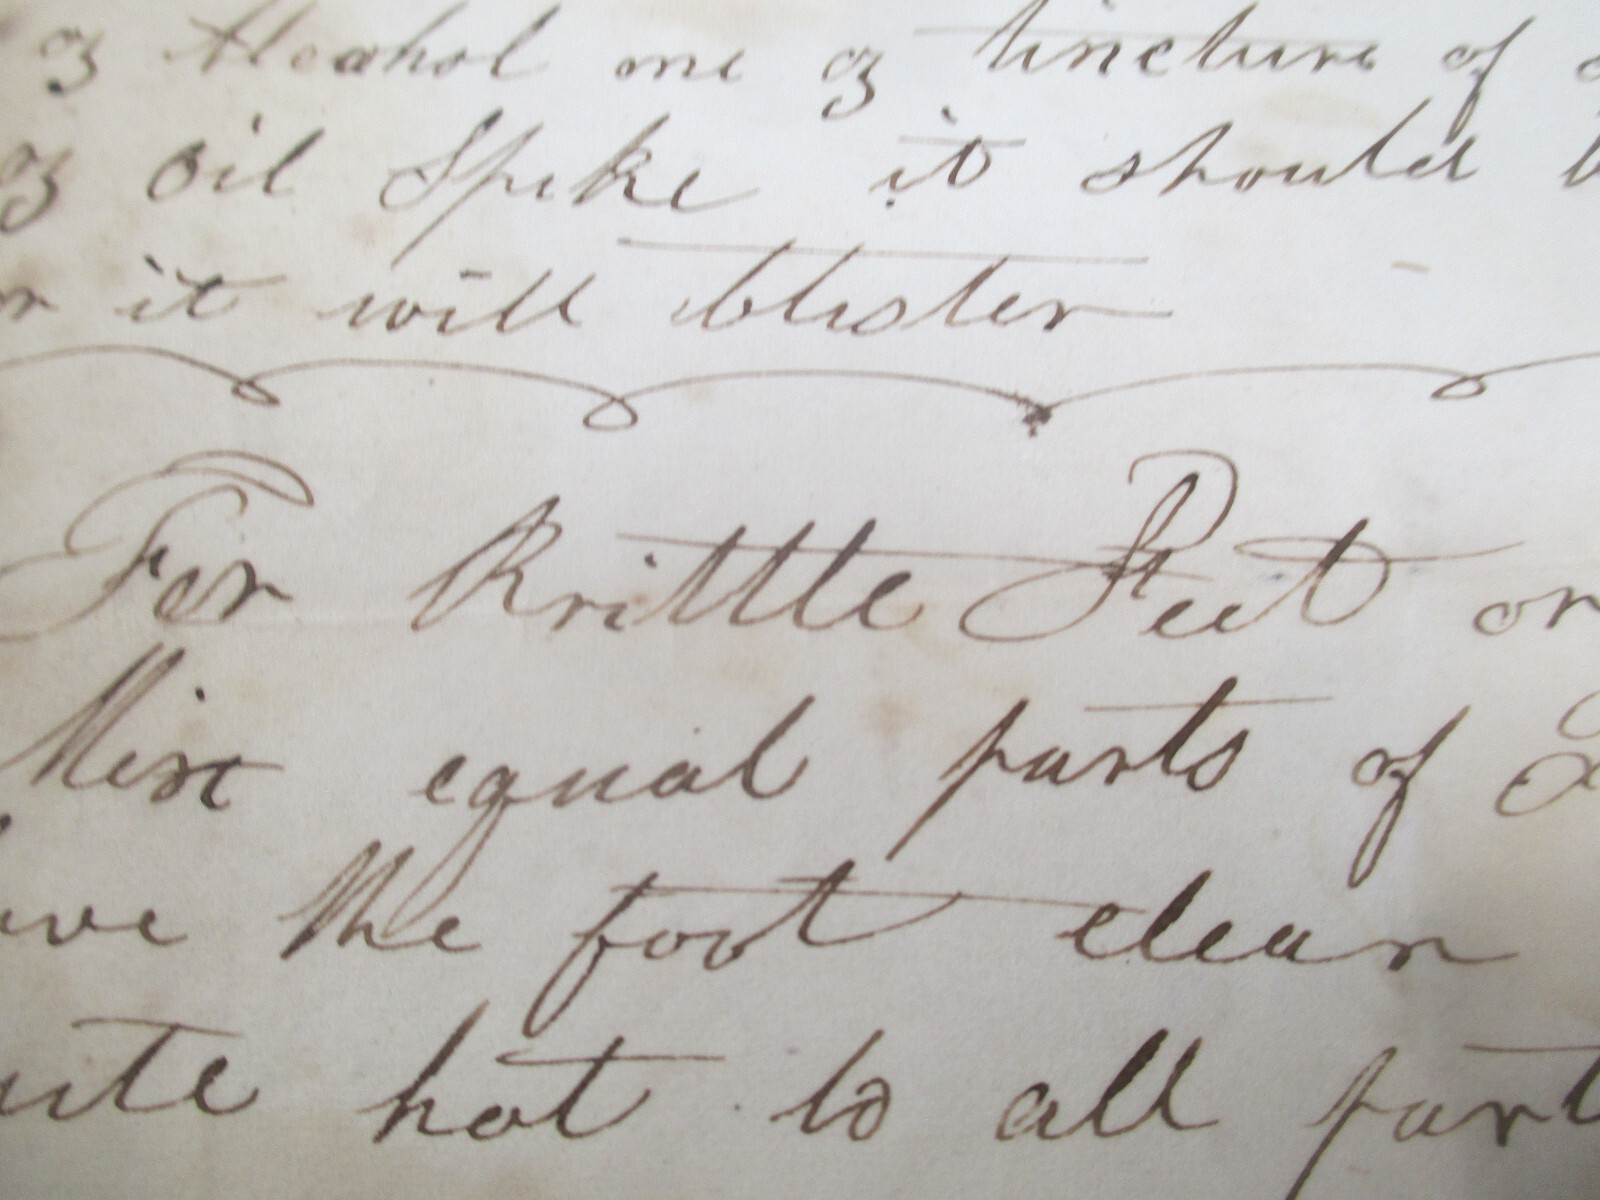 oz Alcohol one oz tincture of
oz Oil Spike it should
or it will blister
For Brittle Feet or
Mix equal parts of
the foot clean
hot to all part